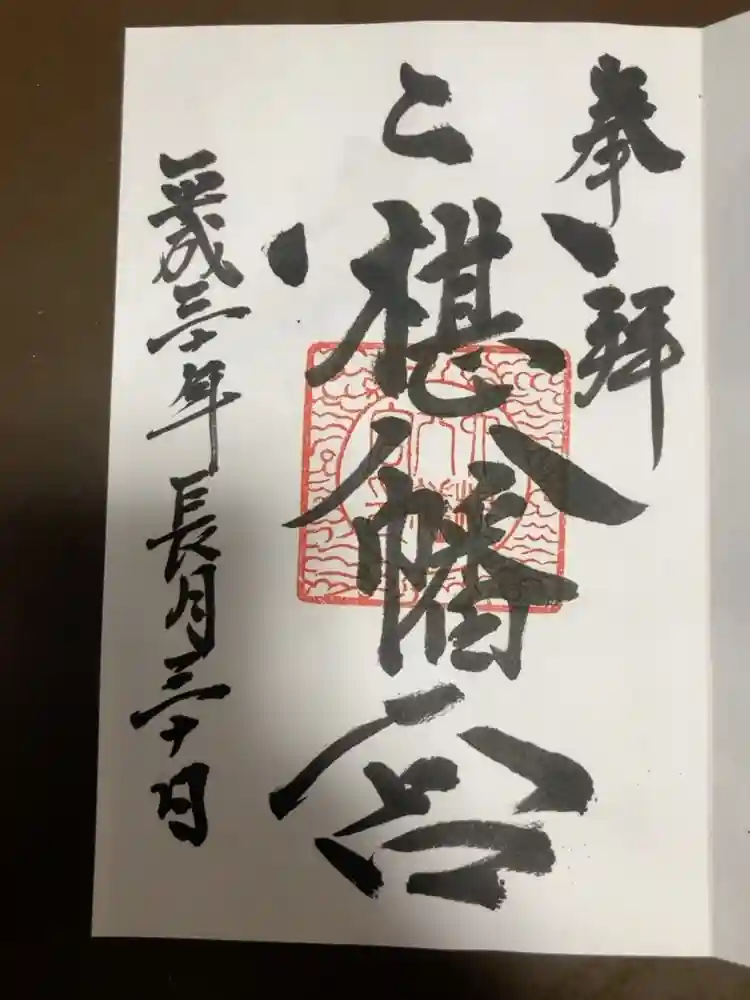 奉拝
八幡宮
平成三十年長月三十日